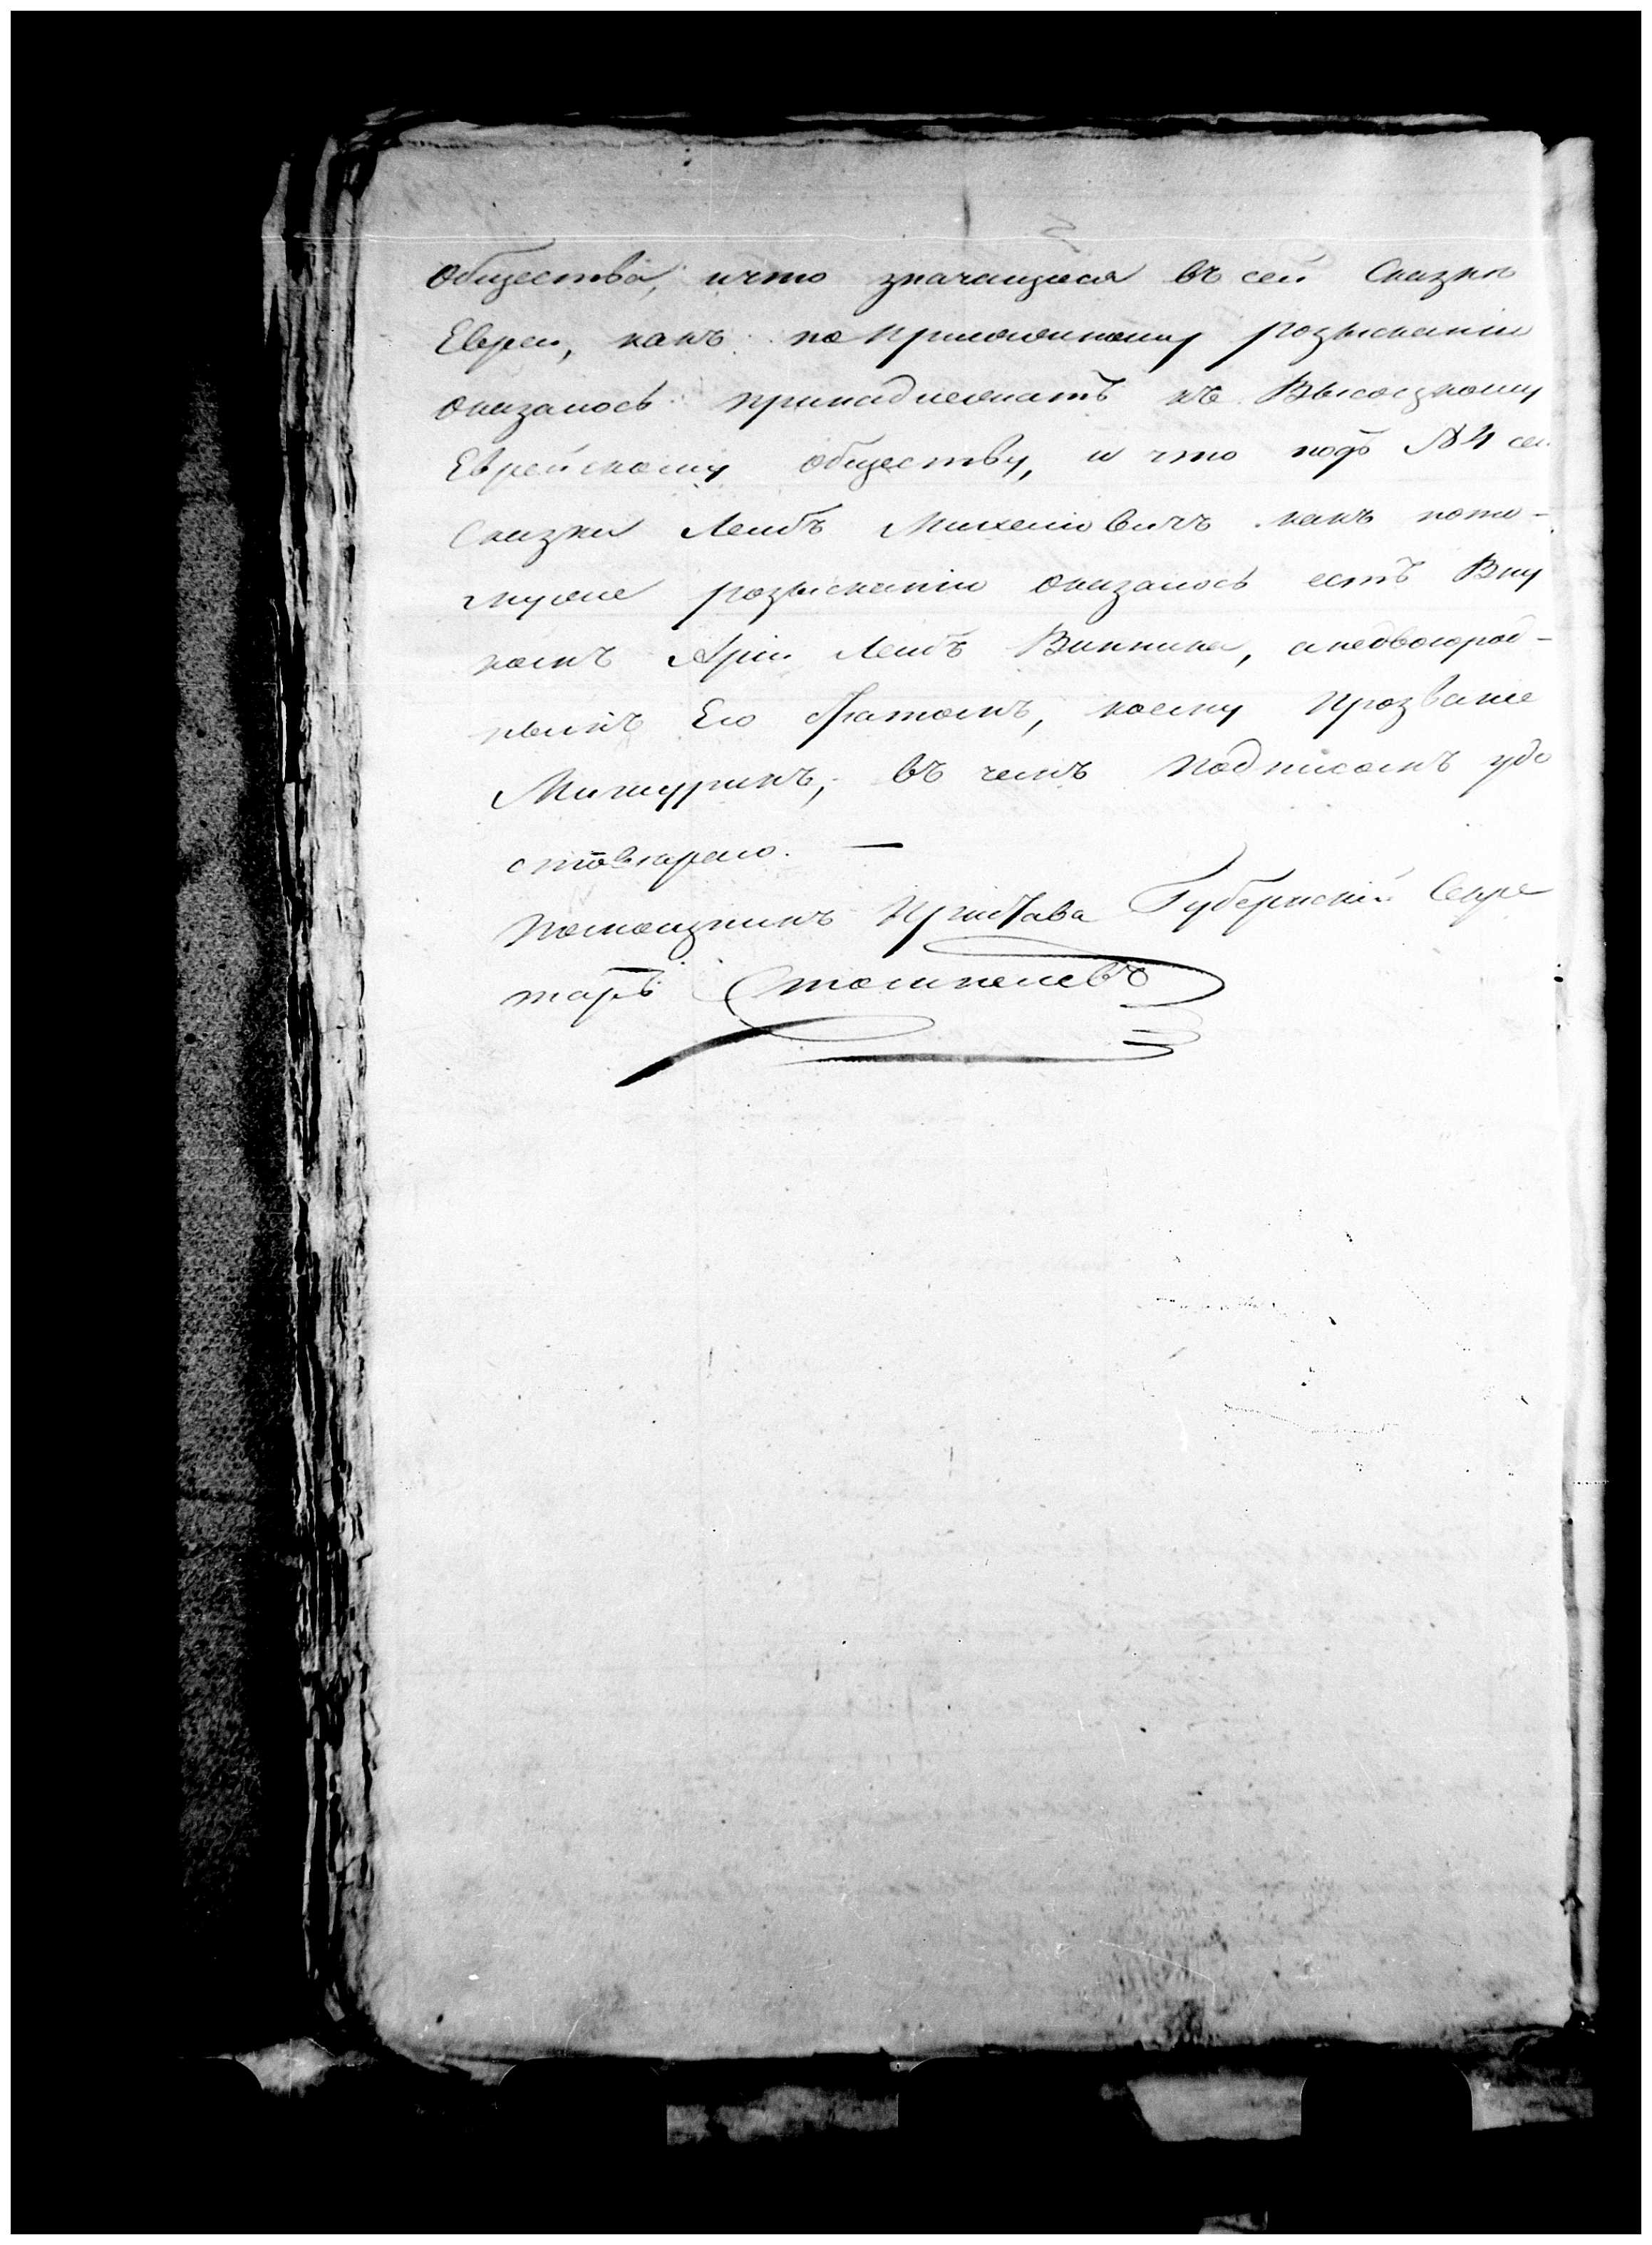 общества, ичто значащиеся въ сей Сказки
Евреи, какъ по приложенному розысканію
оказалось принадлежатъ къ Высоцкому
Еврейскому обществу, и что подъ №4 сей
Сказки Лейбъ Михелiовичъ какъ пото-
муже розысканію оказалось естъ Вну
комъ Арiи Лейбъ Винника, анедвоюрод-
нымъ Его братомъ, коему прозваніе
Мишуринъ, въ чемъ подписомъ удо
стовѣряю. —
Помощникъ Пристава Губернскій Секре
таръ